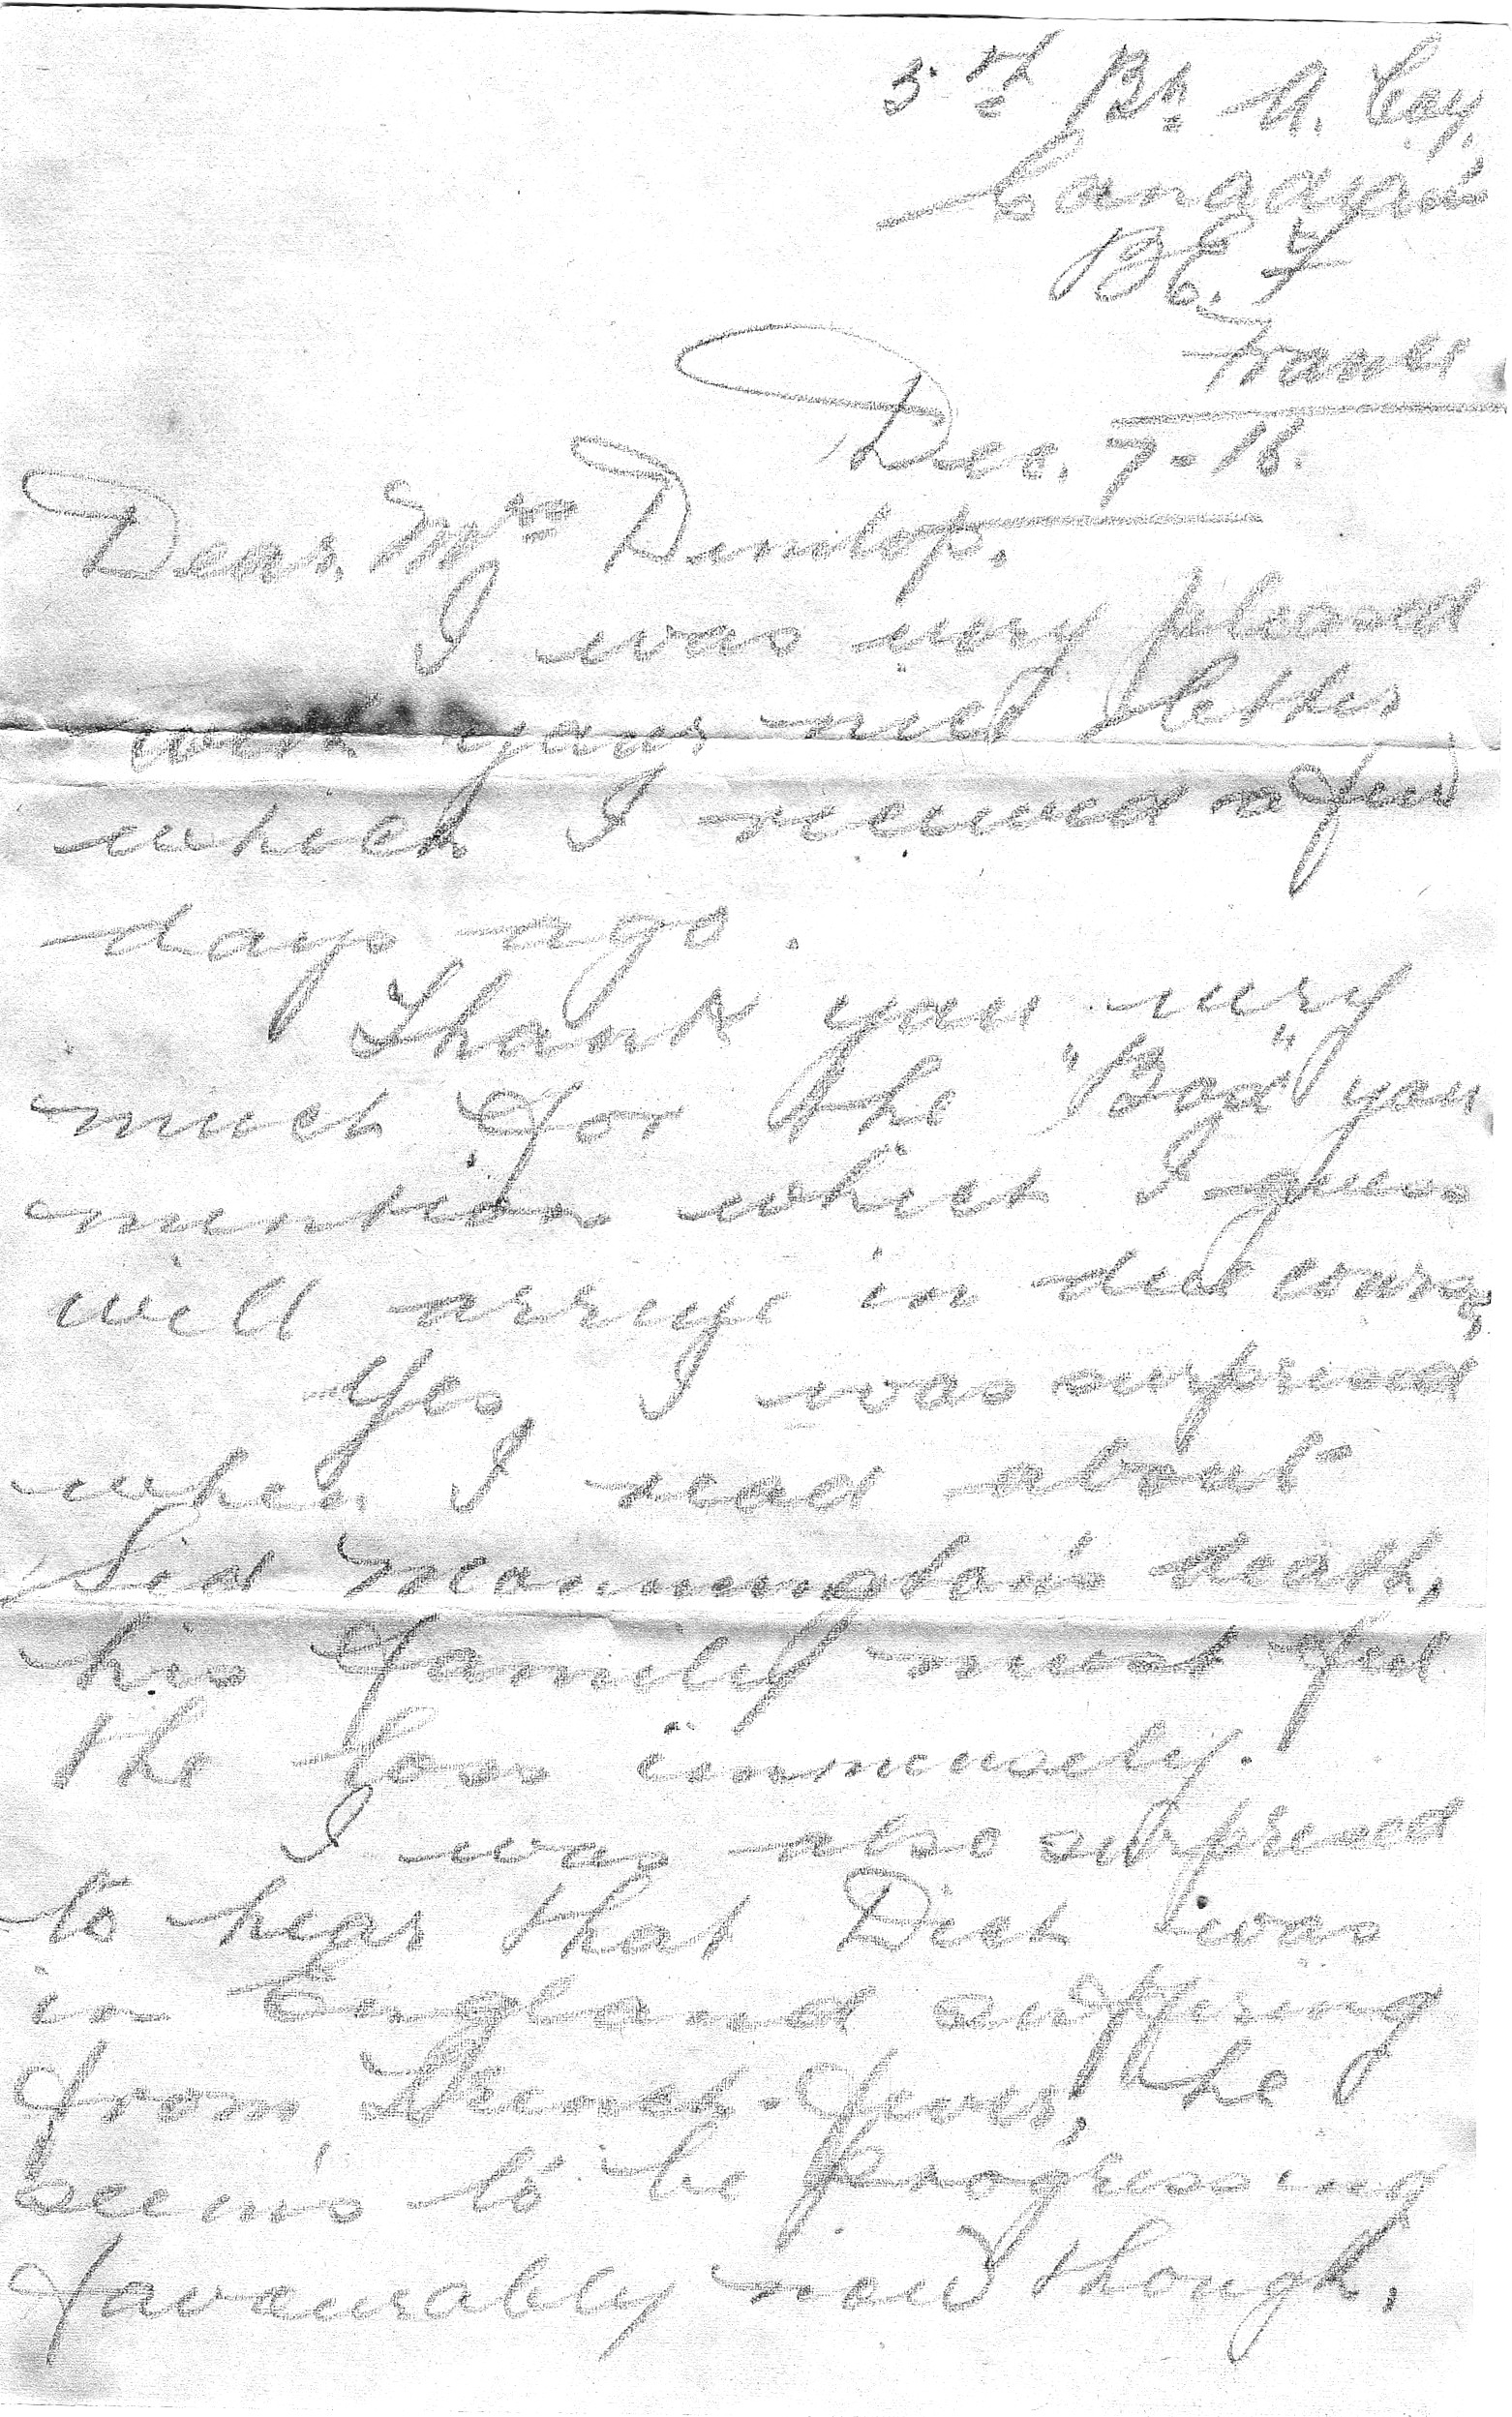 5th Bn A. Coy,
Canadians
B.E.F
France
Dec. 7-18.
Dear Mrs Dunlop.
I was very pleased
with your nice letter
which I received a few
days ago.
Thank you very
much for the "Box" you
mention which I guess
will arrive in due course,
Yes, I was surprised
when I read about
Sid Mannington's death,
his family must feel
the loss immensely.
I was also surprised
to hear that Dick was
in England suffering
from, Trench-fever, he
seems to be progressing
favourably now though.